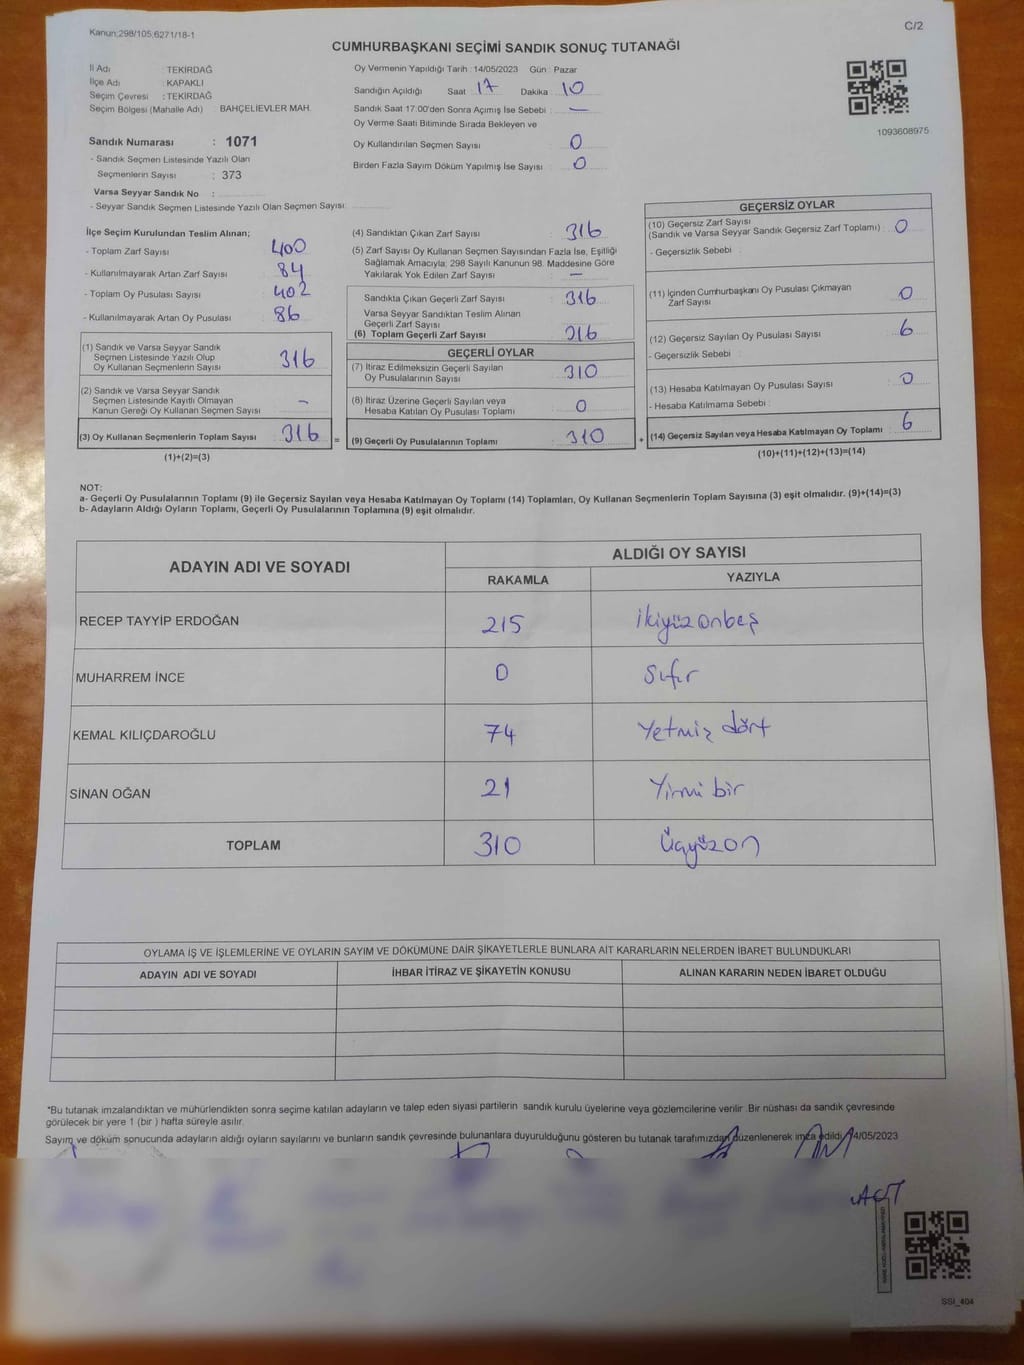 Kanun:298/105,6271/18-1
C/2
CUMHURBAŞKANI SEÇİMİ SANDIK SONUÇ TUTANAĞI
İl Adı : TEKİRDAĞ
İlçe Adı : KAPAKLI
Seçim Çevresi : TEKİRDAĞ
Seçim Bölgesi (Mahalle Adı) BAHÇELİEVLER MAH.
Sandık Numarası : 1071
- Sandık Seçmen Listesinde Yazılı Olan
Seçmenlerin Sayısı : 373
Varsa Seyyar Sandık No :
- Seyyar Sandık Seçmen Listesinde Yazılı Olan Seçmen Sayısı:
Oy Vermenin Yapıldığı Tarih :14/05/2023 Gün : Pazar
Sandığın Açıldığı Saat : 17 Dakika : 10
Sandık Saat 17:00'den Sonra Açılmış İse Sebebi : —
Oy Verme Saati Bitiminde Sırada Bekleyen ve
Oy Kullandırılan Seçmen Sayısı : 0
Birden Fazla Sayım Döküm Yapılmış İse Sayısı : 0
1093608975
İlçe Seçim Kurulundan Teslim Alınan;
- Toplam Zarf Sayısı : 400
- Kullanılmayarak Artan Zarf Sayısı : 84
- Toplam Oy Pusulası Sayısı : 402
- Kullanılmayarak Artan Oy Pusulası : 86
(1) Sandık ve Varsa Seyyar Sandık
Seçmen Listesinde Yazılı Olup
Oy Kullanan Seçmenlerin Sayısı : 316
(2) Sandık ve Varsa Seyyar Sandık
Seçmen Listesinde Kayıtlı Olmayan
Kanun Gereği Oy Kullanan Seçmen Sayısı : -
(3) Oy Kullanan Seçmenlerin Toplam Sayısı : 316
(1)+(2)=(3)
(4) Sandıktan Çıkan Zarf Sayısı : 316
(5) Zarf Sayısı Oy Kullanan Seçmen Sayısından Fazla İse, Eşitliği
Sağlamak Amacıyla; 298 Sayılı Kanunun 98. Maddesine Göre
Yakılarak Yok Edilen Zarf Sayısı : —
Sandıkta Çıkan Geçerli Zarf Sayısı : 316
Varsa Seyyar Sandıktan Teslim Alınan
Geçerli Zarf Sayısı :
(6) Toplam Geçerli Zarf Sayısı : 316
GEÇERLİ OYLAR
(7) İtiraz Edilmeksizin Geçerli Sayılan
Oy Pusulalarının Sayısı : 310
(8) İtiraz Üzerine Geçerli Sayılan veya
Hesaba Katılan Oy Pusulası Toplamı : 0
= (9) Geçerli Oy Pusulalarının Toplamı : 310
GEÇERSİZ OYLAR
(10) Geçersiz Zarf Sayısı
(Sandık ve Varsa Seyyar Sandık Geçersiz Zarf Toplamı) : 0
- Geçersizlik Sebebi :
(11) İçinden Cumhurbaşkanı Oy Pusulası Çıkmayan
Zarf Sayısı : 0
(12) Geçersiz Sayılan Oy Pusulası Sayısı : 6
- Geçersizlik Sebebi :
(13) Hesaba Katılmayan Oy Pusulası Sayısı : 0
- Hesaba Katılmama Sebebi :
+ (14) Geçersiz Sayılan veya Hesaba Katılmayan Oy Toplamı : 6
(10)+(11)+(12)+(13)=(14)
NOT:
a- Geçerli Oy Pusulalarının Toplamı (9) ile Geçersiz Sayılan veya Hesaba Katılmayan Oy Toplamı (14) Toplamları, Oy Kullanan Seçmenlerin Toplam Sayısına (3) eşit olmalıdır. (9)+(14)=(3)
b- Adayların Aldığı Oyların Toplamı, Geçerli Oy Pusulalarının Toplamına (9) eşit olmalıdır.
ADAYIN ADI VE SOYADI
ALDIĞI OY SAYISI
RAKAMLA YAZIYLA
RECEP TAYYİP ERDOĞAN 215 ikiyüzonbeş
MUHARREM İNCE 0 Sıfır
KEMAL KILIÇDAROĞLU 74 Yetmiş dört
SİNAN OĞAN 21 Yirmi bir
TOPLAM 310 Üçyüzon
OYLAMA İŞ VE İŞLEMLERİNE VE OYLARIN SAYIM VE DÖKÜMÜNE DAİR ŞİKAYETLERLE BUNLARA AİT KARARLARIN NELERDEN İBARET BULUNDUKLARI
ADAYIN ADI VE SOYADI İHBAR İTİRAZ VE ŞİKAYETİN KONUSU ALINAN KARARIN NEDEN İBARET OLDUĞU
*Bu tutanak imzalandıktan ve mühürlendikten sonra seçime katılan adayların ve talep eden siyasi partilerin sandık kurulu üyelerine veya gözlemcilerine verilir. Bir nüshası da sandık çevresinde
görülecek bir yere 1 (bir ) hafta süreyle asılır.
Sayım ve döküm sonucunda adayların aldığı oyların sayılarını ve bunların sandık çevresinde bulunanlara duyurulduğunu gösteren bu tutanak tarafımızdan düzenlenerek imza edildi. 14/05/2023
SSI_404